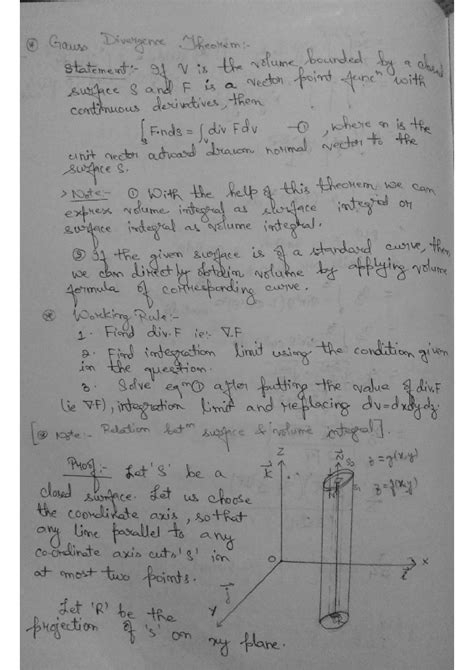 * Gauss Divergence Theorem:-
Statement:- If V is the volume bounded by a closed
surface S and F is a vector point funcⁿ with
continuous derivatives, then
∫_S F.nds = ∫_V div Fdv —①, where n is the
unit vector outward drawn normal vector to the
surface S.
> Note:- ① With the help of this theorem we can
express volume integral as surface integral or
surface integral as volume integral.
② If the given surface is of a standard curve, then
we can directly obtain volume by applying volume
formula of corresponding curve.
* Working Rule:-
1. Find div.F ie:- ∇.F
2. Find integration limit using the condition given
in the question.
3. Solve eqⁿ① after putting the value of div.F
(ie ∇.F), integration limit and replacing dv=dxdydz.
[* Note:- Relation betⁿ surface & volume integral].
Proof:- Let 'S' be a
closed surface. Let us choose
the coordinate axis, so that
any line parallel to any
co-ordinate axis cuts 'S' in
at most two points.
Let 'R' be the
projection of 'S' on xy plane.
Z
k
z=g(x,y)
z=f(x,y)
O
X
i
j
Y